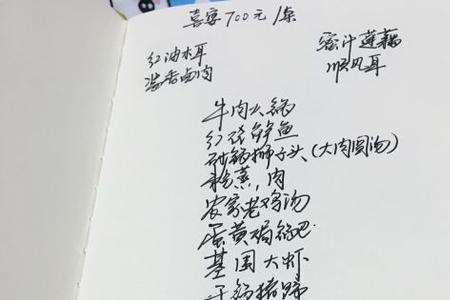 喜宴700元/桌
红油木耳 蜜汁莲藕
酱香卤肉 顺风耳
牛肉火锅
红烧鲜鱼
砂锅狮子头(大肉圆汤)
蒸肉
农家老鸡汤
蛋黄焗锅巴
基围大虾
干锅猪蹄